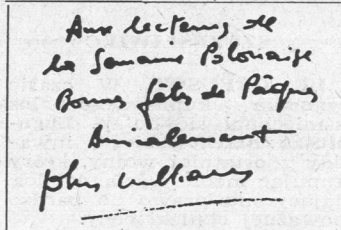 Aux lecteurs de
la Semaine Polonaise
Bonnes fêtes de Pâques
Amicalement
John Williams